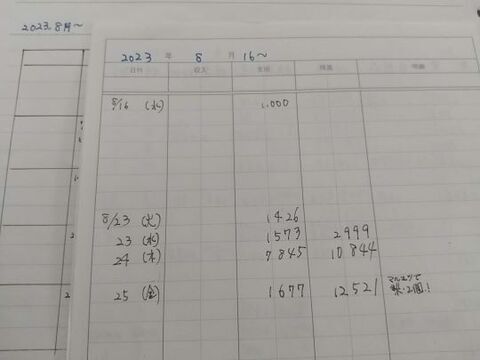 2023.8月～
2023 年 8 月 16～
日付 収入 支出 残高 明細
8/16 (水) 1.000
8/23 (火) 1426
23 (水) 1573 2999
24 (木) 7845 10844
25 (金) 1677 12521 マルエツで
梨・2個!